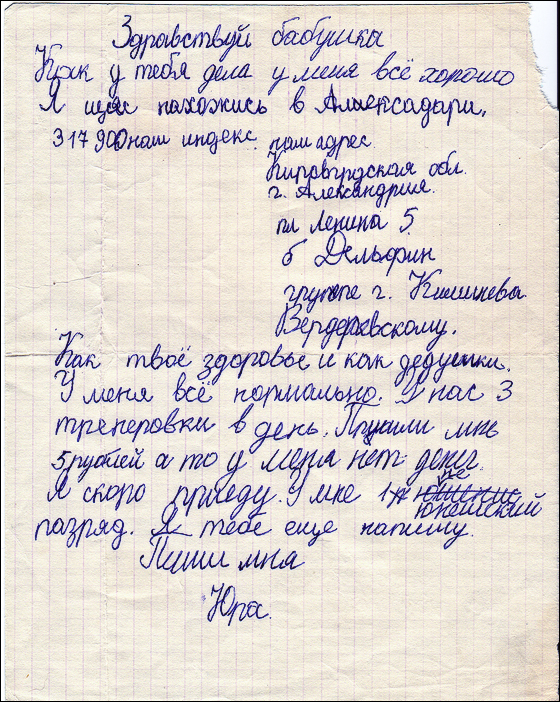 Здравствуй бабушка
Как у тебя дела у меня всё хорошо
Я щас нахожись в Алаексадари.
317900 наш индекс. наш адрес
Кировгрдская обл.
г. Александрия.
пл Ленина 5.
б Дельфин
группе г. Кишинева
Вердеревскому.
Как твоё здоровье и как дедушки.
У меня всё нормально. У нас 3
тренеровки в день. Пришли мне
5 рублей а то у меня нет денег.
Я скоро приеду. У мне 1й юнешский
разряд. Я тебе еще напишу.
Пиши мна
Юра.